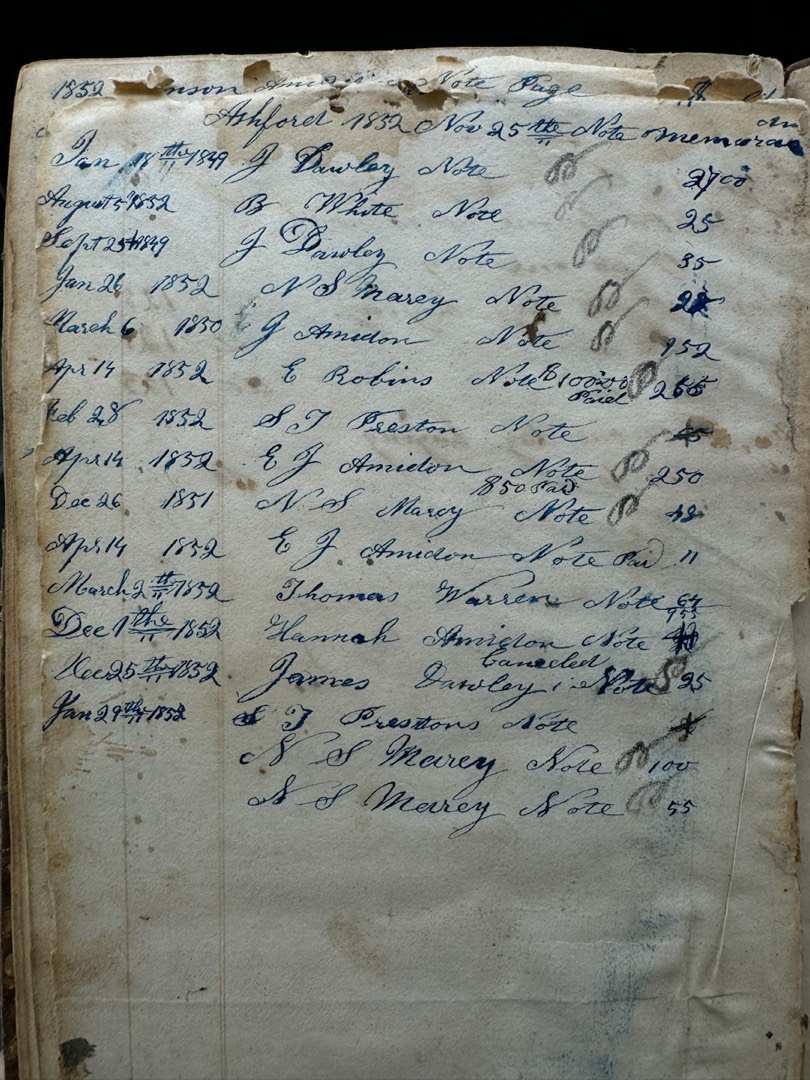 1852 nson Note Page
Ashford 1852 Nov 25 the Note memoran
Jan 18 the 1849 J Dawley Note 2700
August 5th 1852 B White Note 25
Sept 25th 1849 J Dawley Note 35
Jan 26 1852 N S Marcy Note
March 6 1850 G Amidon Note 152
Apr 14 1852 E Robins Note $100.00 Paid
Feb 28 1852 S T Preston Note
Apr 14 1852 E J Amidon Note 250
$50 Paid
Dec 26 1851 N S Marcy Note
Apr 14 1852 E J Amidon Note Paid 11
March 2 th 1852 Thomas Warren Note 64
Dec 1 the 1852 Hannah Amidon Note
Canceled
Dec 25 th 1852 James Dawley Note 25
Jan 29 th 1852 S T Prestons Note
N S Marcy Note 100
N S Marcy Note 55